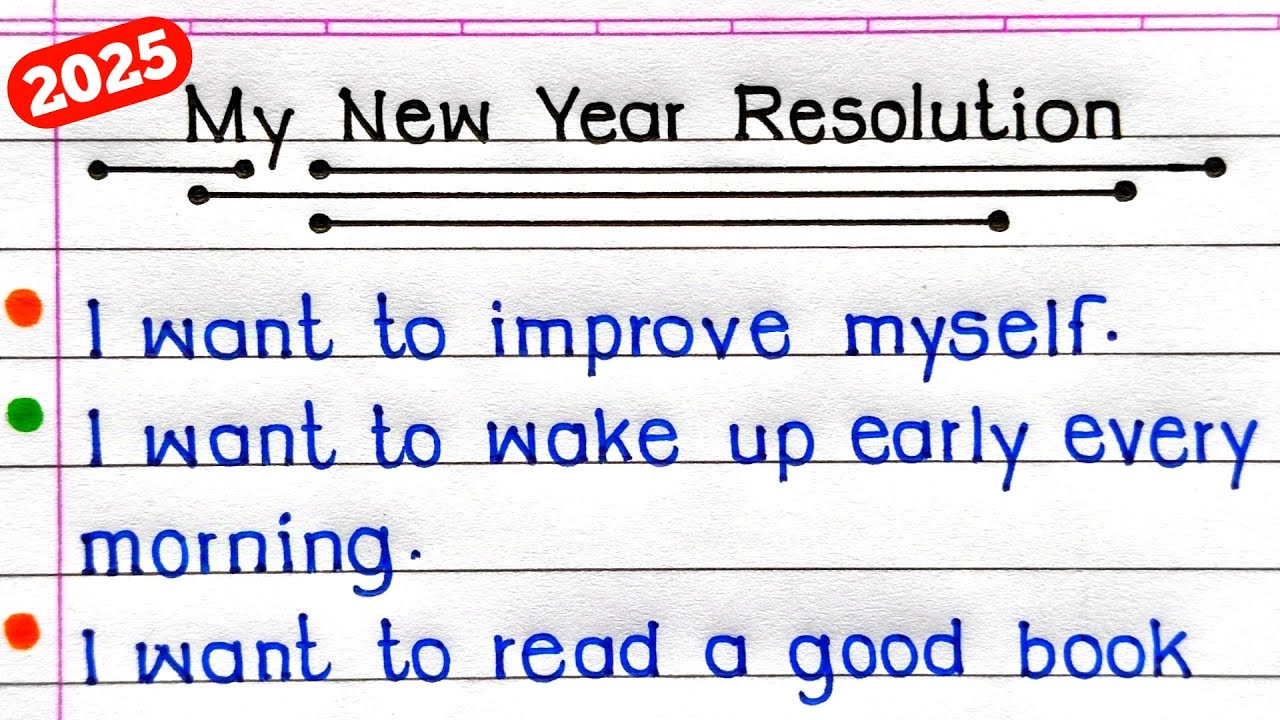 2025
My New Year Resolution
I want to improve myself.
I want to wake up early every
morning.
I want to read a good book